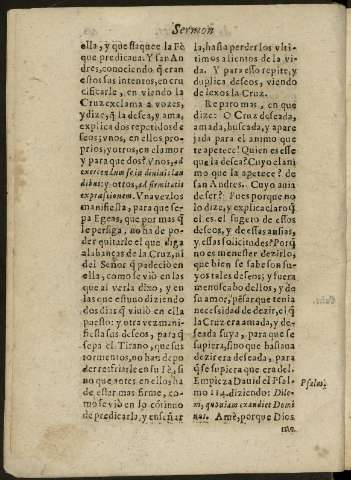 Sermon
ella, y que flaquee la Fè
que predicaua. Y san An
dres, conociendo q̃ eran
estos sus intensos, en cru
cificarle, en viendo la
Cruz exclama a vozes,
y dize, q̃ la desea, y ama,
explica dos repetidos de
seos; vnos, en ellos pro-
prios; y otros, en clamor
y para que dos? Vnos, ad
exercendum se in diuinis lau
dibus; y otros, ad firmitatis
expressionem. Vna vez los
manifiesta, para que se-
pa Egeas, que por mas q̃
le persiga, no ha de po-
der quitarle el que diga
alabanças de la Cruz, ni
del Señor q̃ padeciò en
ella, como se viò en las
que al verla dixo, y en
las que estuuo diziendo
dos dias q̃ viuiò en ella
puesto: y otra vez mani-
fiesta sus deseos, para q̃
sepa el Tirano, que sus
tormentos, no han de po
der resfriarle en su Fè, si
no que antes en ellos ha
de estar mas firme, co-
mo se viò en lo cõtinuo
de predicarla, y enseñar
la, hasta perder los vlti-
timos alientos de la vi-
da. Y para esso repite, y
duplica deseos, viendo
de lexos la Cruz.
Reparo mas, en que
dize: O Cruz deseada,
amada, buscada, y apare
jada para el animo que
te apetece? Quien es esse
que la desea? Cuyo el ani
mo que la apetece? de
san Andres. Cuyo auia
de ser? Pues porque no
lo dize, y explica claro q̃
el es el sugeto de essos
deseos, y de essas ansias,
y essas solicitudes? Porq̃
no es menester dezirlo,
que bien se sabe son su-
yos tales deseos; y fuera
menoscabo dellos, y de
su amor, pẽsar que tenia
necessidad de dezir, el q̃
la Cruz era amada, y de-
seada suya, para que se
supiera, sino que bastaua
dezir era deseada, para
q̃ se supiera que era del.
Empieza Dauid el Psal
mo 114. diziendo: Dile-
xi, quoniam exaudiet Domi
nus. Amè, porque Dios
Psalm.
me